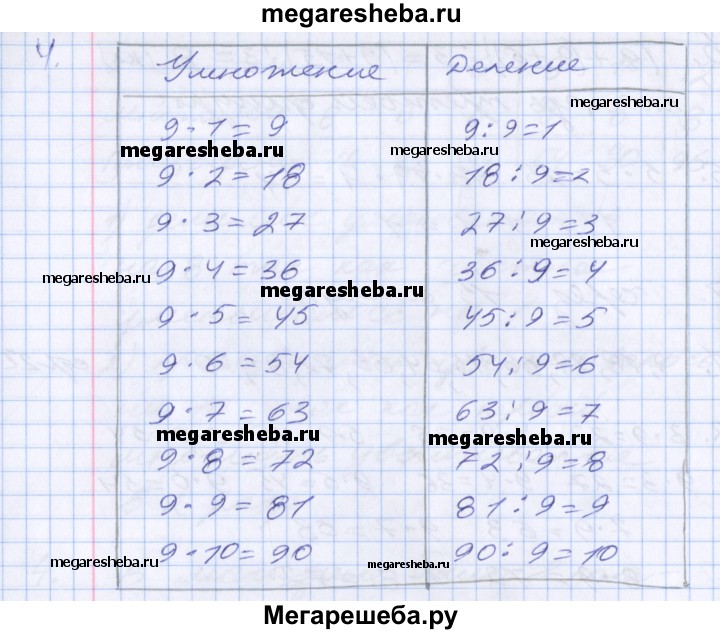 megaresheba.ru
4.
Умножение Деление
megaresheba.ru
9·1=9 9:9=1
megaresheba.ru megaresheba.ru
9·2=18 18:9=2
9·3=27 27:9=3
megaresheba.ru
9·4=36 36:9=4
megaresheba.ru
megaresheba.ru
9·5=45 45:9=5
9·6=54 54:9=6
9·7=63 63:9=7
megaresheba.ru megaresheba.ru
9·8=72 72:9=8
9·9=81 81:9=9
9·10=90 90:9=10
megaresheba.ru megaresheba.ru
Мегарешеба.ру